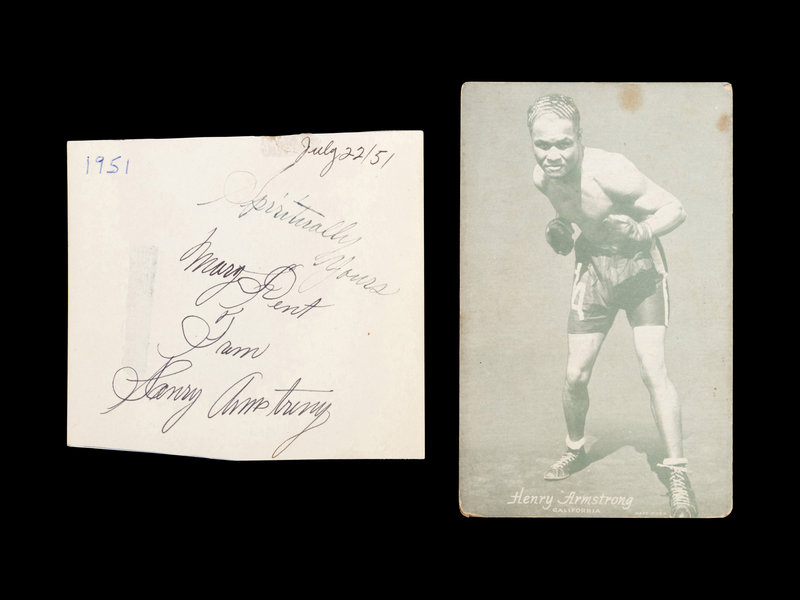 1951
July 22/51
Spiritually
Yours
Mary Kent
&
Fam
Henry Armstrong
Henry Armstrong
CALIFORNIA
MADE IN U.S.A.